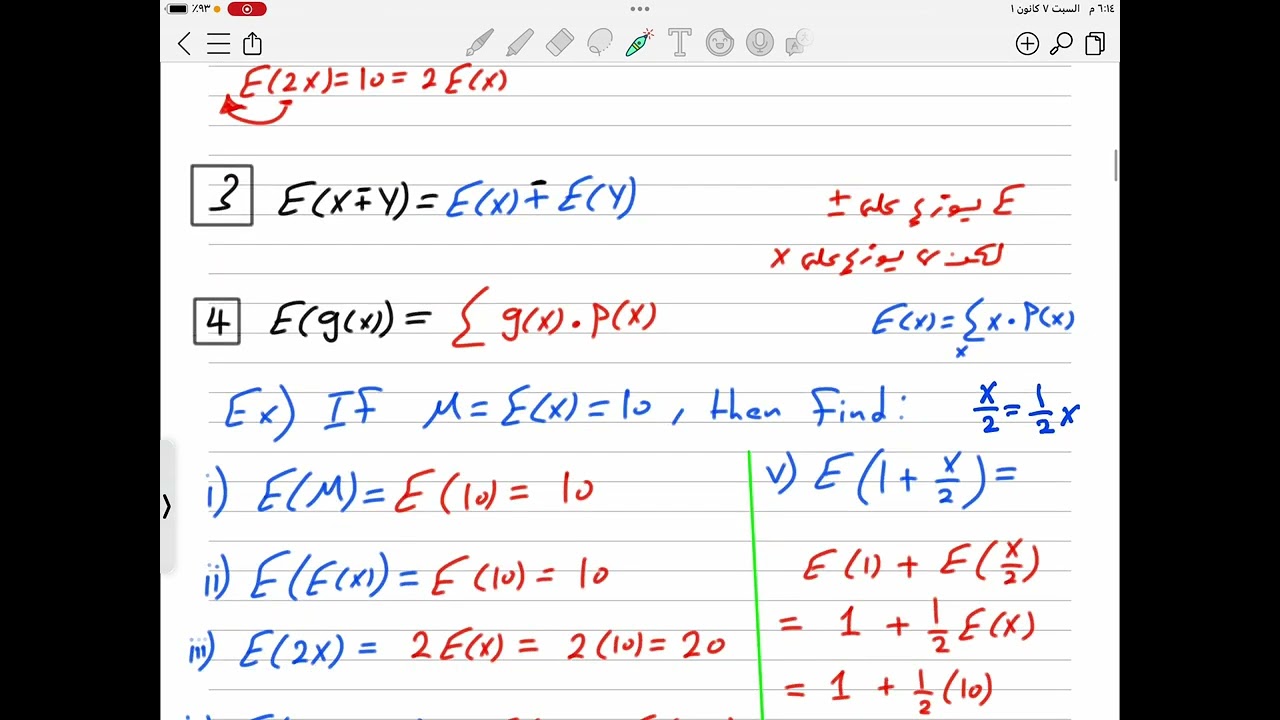 ٪٩٣
٦:١٤ م السبت ٧ كانون ١
E(2x)=10=2E(x)
3 E(X∓Y)=E(x)∓E(Y)
E يوزع على ±
لكن لا يوزع على x
4 E(g(x))= Σ g(x)·P(x)
E(x)=Σ x·P(x)
x
Ex) If μ=E(x)=10, then find:
x/2=1/2x
i) E(μ)=E(10)=10
ii) E(E(x))=E(10)=10
iii) E(2x)= 2E(x)= 2(10)=20
v) E(1+x/2)=
E(1)+E(x/2)
= 1 + 1/2E(x)
= 1 + 1/2(10)